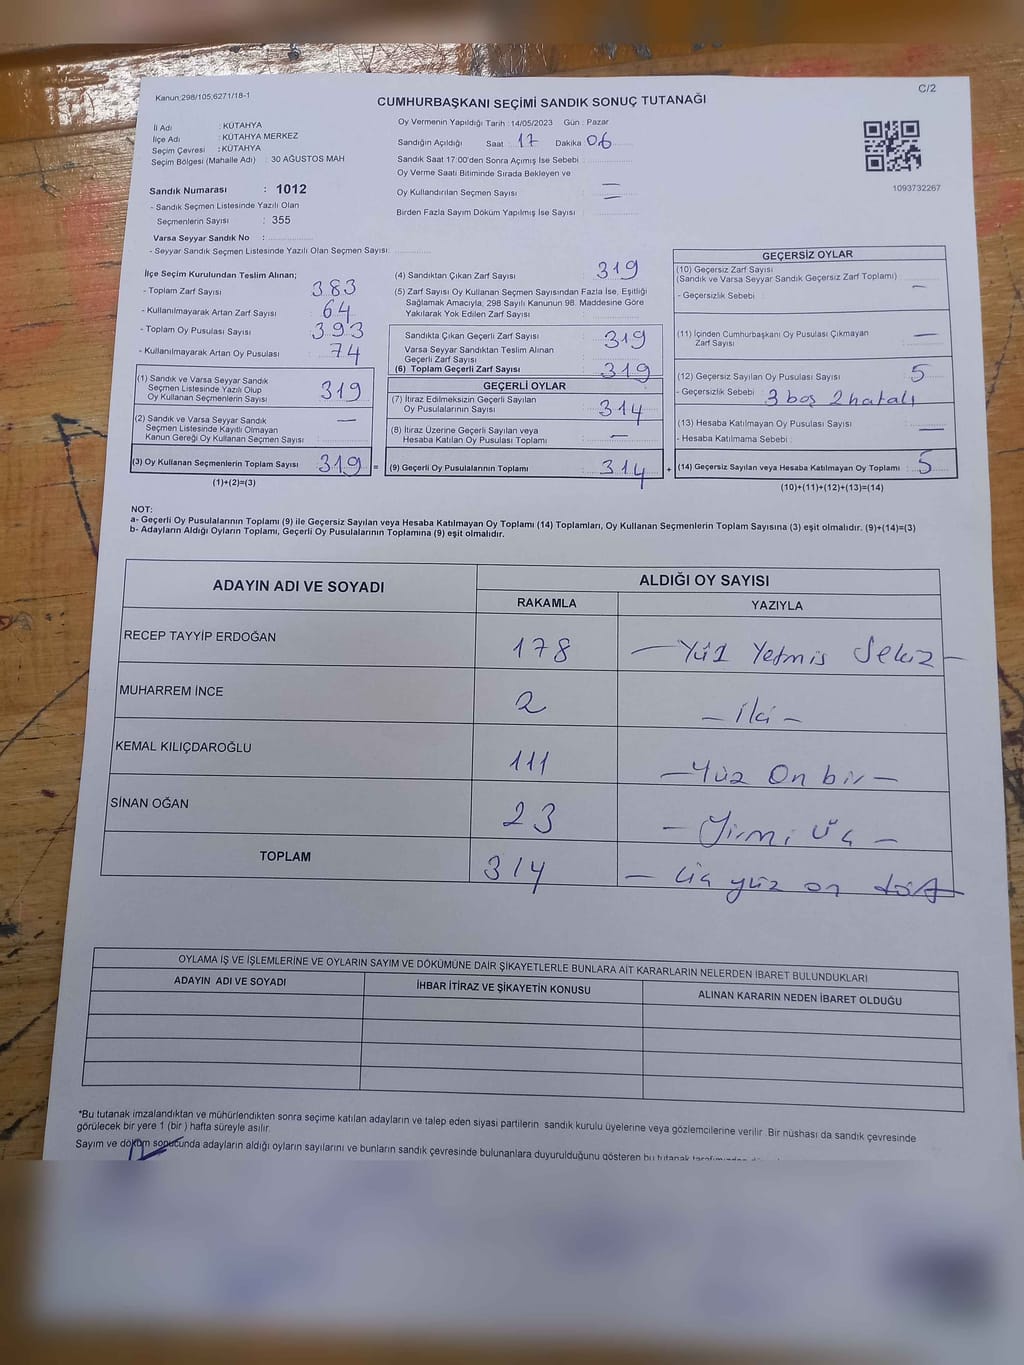 Kanun:298/105,6271/18-1
C/2
CUMHURBAŞKANI SEÇİMİ SANDIK SONUÇ TUTANAĞI
İl Adı : KÜTAHYA
İlçe Adı : KÜTAHYA MERKEZ
Seçim Çevresi : KÜTAHYA
Seçim Bölgesi (Mahalle Adı) : 30 AĞUSTOS MAH
Sandık Numarası : 1012
- Sandık Seçmen Listesinde Yazılı Olan
Seçmenlerin Sayısı : 355
Varsa Seyyar Sandık No :
- Seyyar Sandık Seçmen Listesinde Yazılı Olan Seçmen Sayısı:
Oy Vermenin Yapıldığı Tarih : 14/05/2023 Gün : Pazar
Sandığın Açıldığı Saat : 17 Dakika 06
Sandık Saat 17:00'den Sonra Açımış İse Sebebi :
Oy Verme Saati Bitiminde Sırada Bekleyen ve
Oy Kullandırılan Seçmen Sayısı : —
Birden Fazla Sayım Döküm Yapılmış İse Sayısı : —
1093732267
İlçe Seçim Kurulundan Teslim Alınan;
- Toplam Zarf Sayısı : 383
- Kullanılmayarak Artan Zarf Sayısı : 64
- Toplam Oy Pusulası Sayısı : 393
- Kullanılmayarak Artan Oy Pusulası : 74
(1) Sandık ve Varsa Seyyar Sandık
Seçmen Listesinde Yazılı Olup
Oy Kullanan Seçmenlerin Sayısı : 319
(2) Sandık ve Varsa Seyyar Sandık
Seçmen Listesinde Kayıtlı Olmayan
Kanun Gereği Oy Kullanan Seçmen Sayısı : —
(3) Oy Kullanan Seçmenlerin Toplam Sayısı : 319 =
(1)+(2)=(3)
(4) Sandıktan Çıkan Zarf Sayısı : 319
(5) Zarf Sayısı Oy Kullanan Seçmen Sayısından Fazla İse, Eşitliği
Sağlamak Amacıyla; 298 Sayılı Kanunun 98. Maddesine Göre
Yakılarak Yok Edilen Zarf Sayısı :
Sandıkta Çıkan Geçerli Zarf Sayısı : 319
Varsa Seyyar Sandıktan Teslim Alınan
Geçerli Zarf Sayısı :
(6) Toplam Geçerli Zarf Sayısı : 319
GEÇERLİ OYLAR
(7) İtiraz Edilmeksizin Geçerli Sayılan
Oy Pusulasının Sayısı : 314
(8) İtiraz Üzerine Geçerli Sayılan veya
Hesaba Katılan Oy Pusulası Toplamı : —
(9) Geçerli Oy Pusulalarının Toplamı : 314 +
GEÇERSİZ OYLAR
(10) Geçersiz Zarf Sayısı
(Sandık ve Varsa Seyyar Sandık Geçersiz Zarf Toplamı) : —
- Geçersizlik Sebebi :
(11) İçinden Cumhurbaşkanı Oy Pusulası Çıkmayan
Zarf Sayısı : —
(12) Geçersiz Sayılan Oy Pusulası Sayısı : 5
- Geçersizlik Sebebi : 3 boş 2 hatalı
(13) Hesaba Katılmayan Oy Pusulası Sayısı : —
- Hesaba Katılmama Sebebi :
(14) Geçersiz Sayılan veya Hesaba Katılmayan Oy Toplamı : 5
(10)+(11)+(12)+(13)=(14)
NOT:
a- Geçerli Oy Pusulalarının Toplamı (9) ile Geçersiz Sayılan veya Hesaba Katılmayan Oy Toplamı (14) Toplamları, Oy Kullanan Seçmenlerin Toplam Sayısına (3) eşit olmalıdır. (9)+(14)=(3)
b- Adayların Aldığı Oyların Toplamı, Geçerli Oy Pusulalarının Toplamına (9) eşit olmalıdır.
ADAYIN ADI VE SOYADI
ALDIĞI OY SAYISI
RAKAMLA YAZIYLA
RECEP TAYYİP ERDOĞAN 178 — Yüz Yetmiş Sekiz —
MUHARREM İNCE 2 — İki —
KEMAL KILIÇDAROĞLU 111 — Yüz On bir —
SİNAN OĞAN 23 — Yirmi Üç —
TOPLAM 314 — üç yüz on dört
OYLAMA İŞ VE İŞLEMLERİNE VE OYLARIN SAYIM VE DÖKÜMÜNE DAİR ŞİKAYETLERLE BUNLARA AİT KARARLARIN NELERDEN İBARET BULUNDUKLARI
ADAYIN ADI VE SOYADI İHBAR İTİRAZ VE ŞİKAYETİN KONUSU ALINAN KARARIN NEDEN İBARET OLDUĞU
*Bu tutanak imzalandıktan ve mühürlendikten sonra seçime katılan adayların ve talep eden siyasi partilerin sandık kurulu üyelerine veya gözlemcilerine verilir. Bir nüshası da sandık çevresinde
görülecek bir yere 1 (bir ) hafta süreyle asılır.
Sayım ve döküm sonucunda adayların aldığı oyların sayılarını ve bunların sandık çevresinde bulunanlara duyurulduğunu gösteren bu tutanak